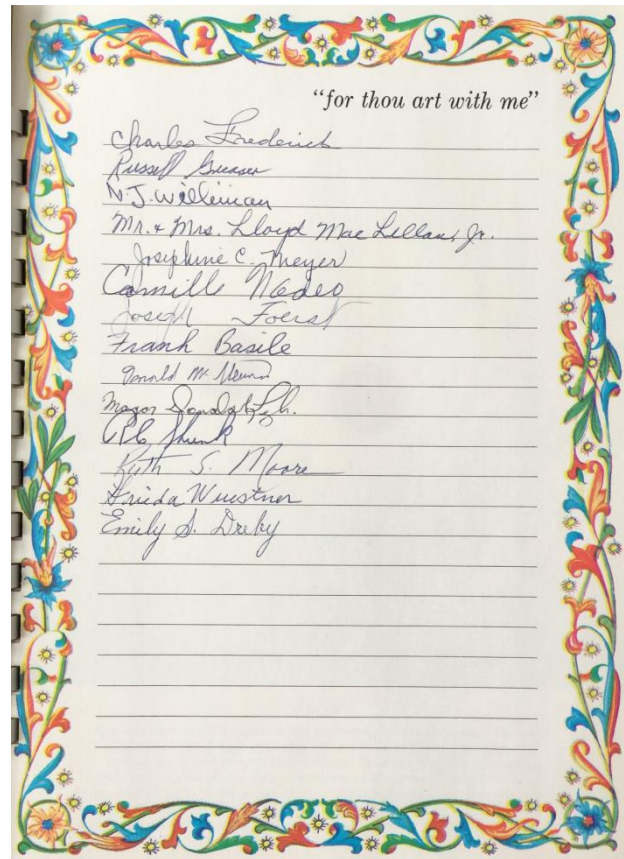 “for thou art with me”
Charles Frederick
Russell
N.J. Willeiman
Mr. + Mrs. Lloyd Mac Lellan, Jr.
Josephine C. Meyer
Camille Nadeo
Joseph Foerst
Frank Basile
Donald M.
Major
Shunk
Ruth S. Moore
Frieda Wuestner
Emily S. Dreby